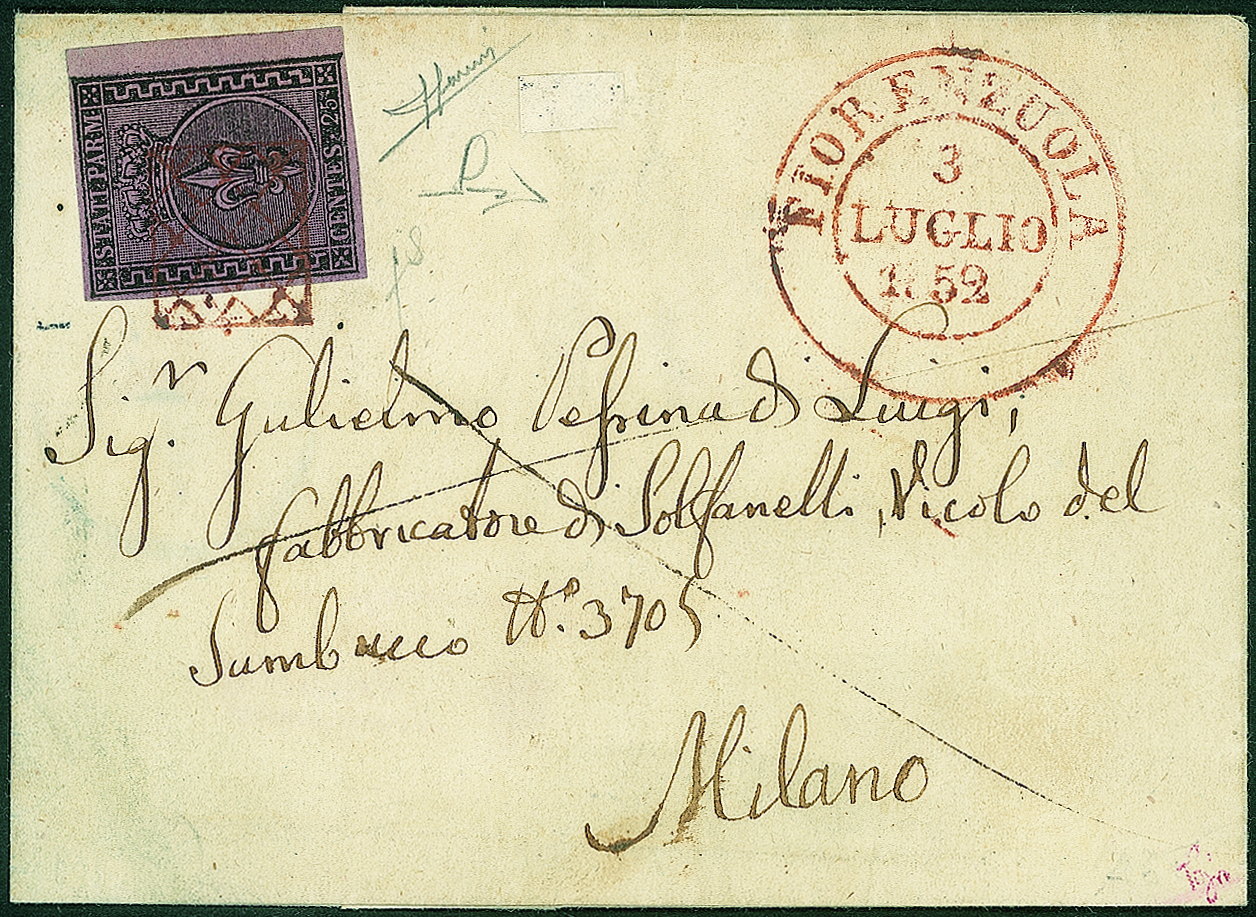 STATI PARM.
CENTES. 25
FIORENZUOLA
3
LUGLIO
1852
Sigr. Gulielmo di Luigi,
fabbricatore di Solfanelli, Vicolo del
Sambuco N.° 3705
Milano